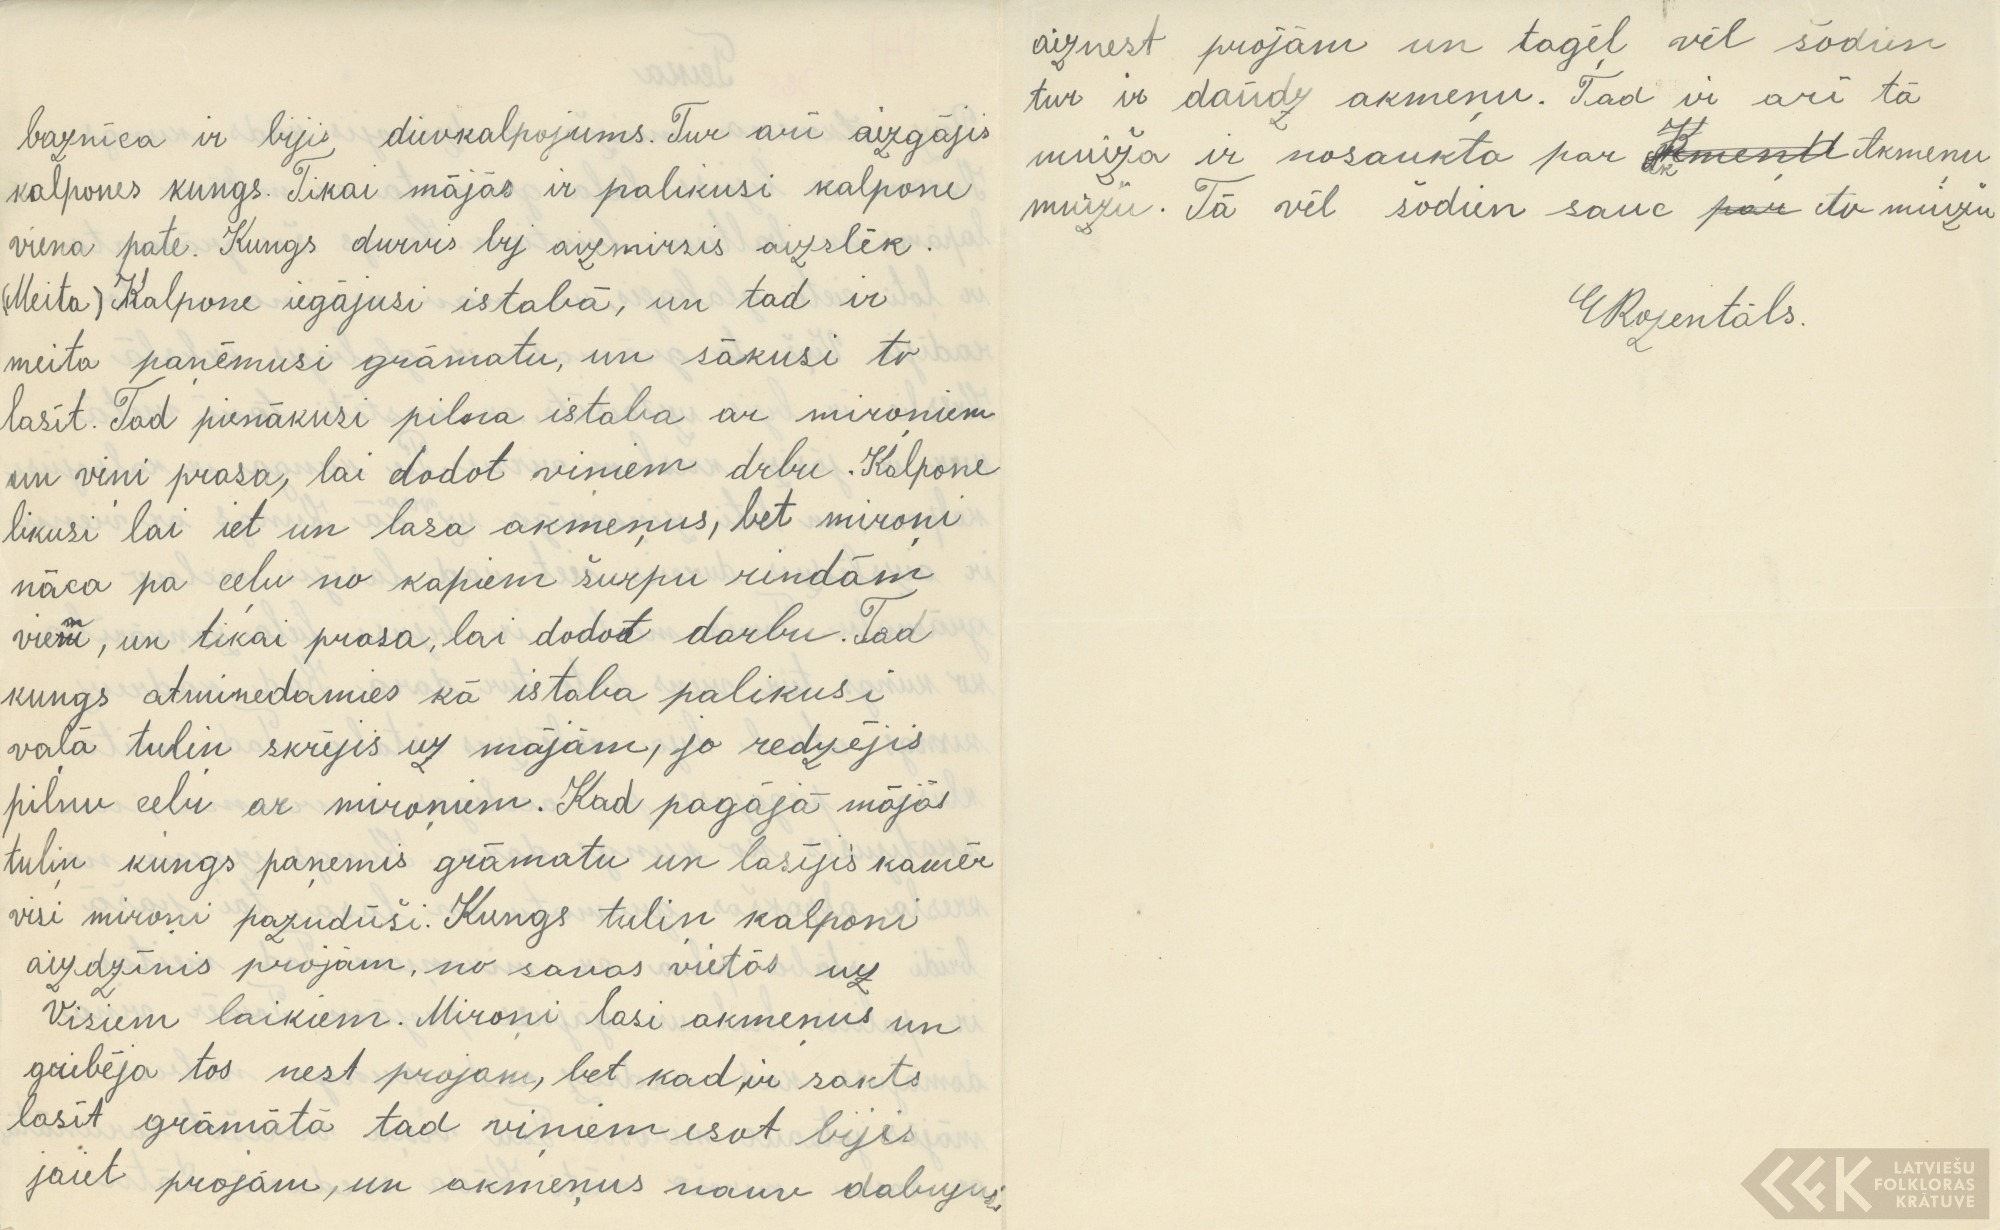 baznīca ir bijis dievkalpojums. Tur arī aizgājis
kalpones kungs. Tikai mājās ir palikusi kalpone
viena pate. Kungs durvis bij aizmirsis aizslēk.
(Meita) Kalpone iegājusi istabā, un tad ir
meita paņēmusi grāmatu, un sākusi to
lasīt. Tad pienākusi pilna istaba ar miroņiem
un viņi prasa, lai dodot viniem drbu. Kalpone
likusi lai iet un lasa akmeņus, bet miroņi
nāca pa ceļu no kapiem šurpu rindām
vien, un tikai prasa, lai dodot darbu. Tad
kungs atminedamies kā istaba palikusi
vaļā tuliņ skrējis uz mājām, jo redzējis
pilnu ceļu ar miroņiem. Kad pagājā mājās
tuliņ kungs paņemis grāmatu un lasījis kamēr
visi miroņi pazudūši. Kungs tuliņ kalponi
aizdzīnis projām, no savas vietās uz
Visiem laikiem. Miroņi lasi akmeņus un
gribēja tos nest projam, bet kad ir sakts
lasīt grāmātā tad viņiem esot bijis
jāiet projām, un akmeņus nauv dabujuši
aiznest projām un tagēl vēl šodien
tur ir daūdz akmeņu. Tad ir arī tā
muiža ir nosaukta par Akmeņu Akmeņu
muižu. Tā vēl šodien sauc par to muižu
ERozentāls.
LATVIEŠU
FOLKLORAS
KRĀTUVE